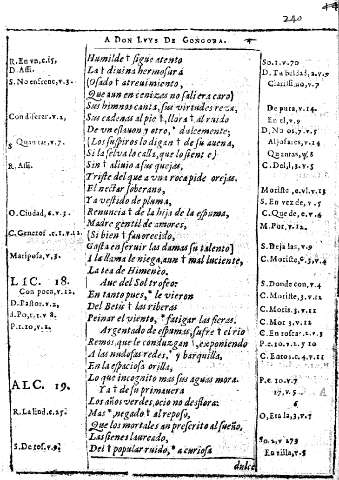 240
A DON LVYS DE GONGORA.
R. En vn, c.15, Humilde † sigue atento So. 1. v. 70
D. Assi. La † diuina hermosura D. Ta beldad, 2. v. 9
S. No enfrene, v. 3. (Osado † atreuimiento, Clarissimo, v. 7
Que aun en cenizas no saliera caro)
Sus himnos canta, sus virtudes reza, De pura, v. 14.
Con diferer. v. 2, Sus cadenas al pie †, llora † al ruido En el, v. 9
De vn eslauon y otro, * dulcemente; D. No os, 7. v. 5
S Quantas, v. 7. (Los suspiros lo digan † de su auena, Aljofares, v. 14
Si la selua lo calla, que lo siente) Quantas, v. 8
R. Assi. Sin † aliuio a sus quejas, C. Del, 3. v. 5
Triste del que a vna roca pide orejas.
El nectar soberano, Moriste, v. 13
Ya vestido de pluma, S. En vez de, v. 5
O. Ciudad, 6. v. 5. Renuncia † de la hija de la espuma, C. Que de, e. v. 6
Madre gentil de amores, M. Por, v. 12.
C. Generos (Si bien † fauorecido,
Gasta en seruir las damas su talento) S. Beja las, v. 9
Mariposa, v. 3, A la llama le niega, aun † mal luciente, C. Moriste, 6. v. 4
La tea de Himeneo.
LIC. 18. Aue del Sol trofeo: S. Donde con, v. 4
Con poco, v. 12. En tanto pues, * le vieron C. Moriste, 3. v. 11
D. Pastor. v. 2, Del Betis † las riberas C. Moris. 3. v. 11
S. Po, 1. 1. v 8, Peinar el viento, * fatigar las fieras. C. Mor 3. v. 12
P. 1. 10, v. 12. Argentado de espumas, sufre † el rio C. En rosca
Remos, que le conduzgan \, exponiendo P. 2. 10. v. 1. y 10
A las nudosas redes, * y barquilla, C. Eatos. c. 4. v. 11
En la espaciosa orilla,
Lo que incognito mas sus aguas mora. P. c. 10. v. 7
ALC. 19. Ya † de su primauera 17, v. 5
Los años verdes, ocio no desflora: 6
R. La End. c. 27. Mas *, negado † al reposo, O, Era la, 3. v. 7
Que los mortales an prescrito al sueño,
Las sienes laureado, So. 2, v 273
S. De tos, v. 9. Del † popular ruido, * a curiosa En tilla, v. 5
dulce